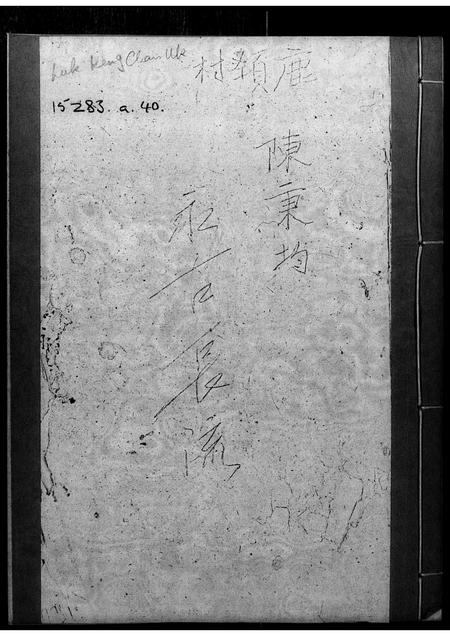 Luk Keng Chan Uk
村頸鹿
15283. a. 40.
陳秉均
永言長流